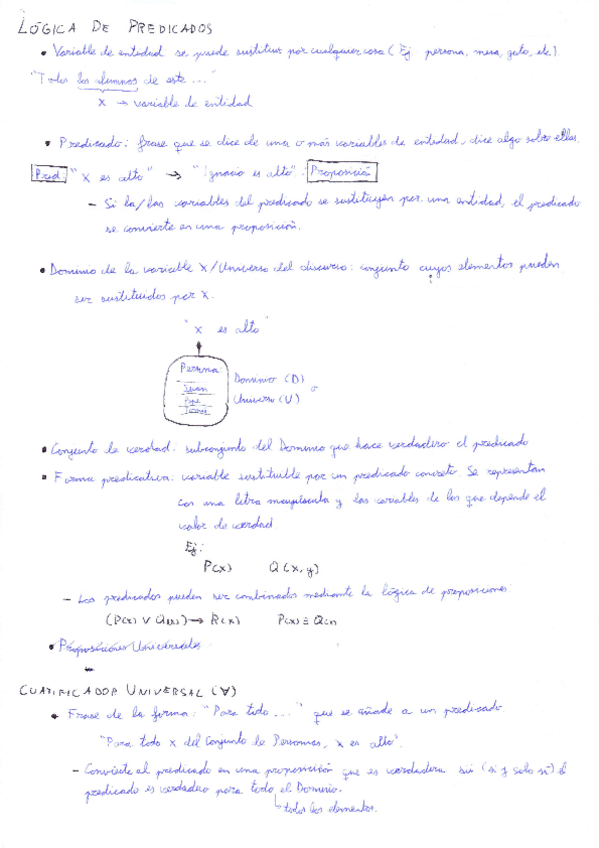 LÓGICA DE PREDICADOS
• Variable de entidad se puede sustituir por cualquier cosa (Ej. persona, mesa, gato, etc)
"Todos los alumnos de este ..."
x → variable de entidad
• Predicado: frase que se dice de una o más variables de entidad, dice algo sobre ellas.
Pred: "x es alto" → "Ignacio es alto". Proposición
- Si la/las variables del predicado se sustituyen por una entidad, el predicado
se convierte en una proposición.
• Dominio de la variable X/Universo del discurso: conjunto cuyos elementos pueden
ser sustituidos por x.
"x es alto"
Persona
Juan
Pepe
Dominio (D) o
Universo (U)
• Conjunto de verdad: subconjunto del Dominio que hace verdadero el predicado
• Forma predicativa: variable sustituible por un predicado concreto. Se representan
con una letra mayúscula y las variables de las que depende el
valor de verdad
Ej:
P(x) Q(x,y)
- Los predicados pueden ser combinados mediante la lógica de proposiciones
(P(x) ∨ Q(x)) → R(x) P(x) ≡ Q(x)
• Proposiciones Universales
CUATIFICADOR UNIVERSAL (∀)
• Frase de la forma: "Para todo ..." que se añade a un predicado
"Para todo x del Conjunto de Personas, x es alto".
- Convierte al predicado en una proposición que es verdadera sii (si y solo si) el
predicado es verdadero para todo el Dominio.
↳ todos los elementos.